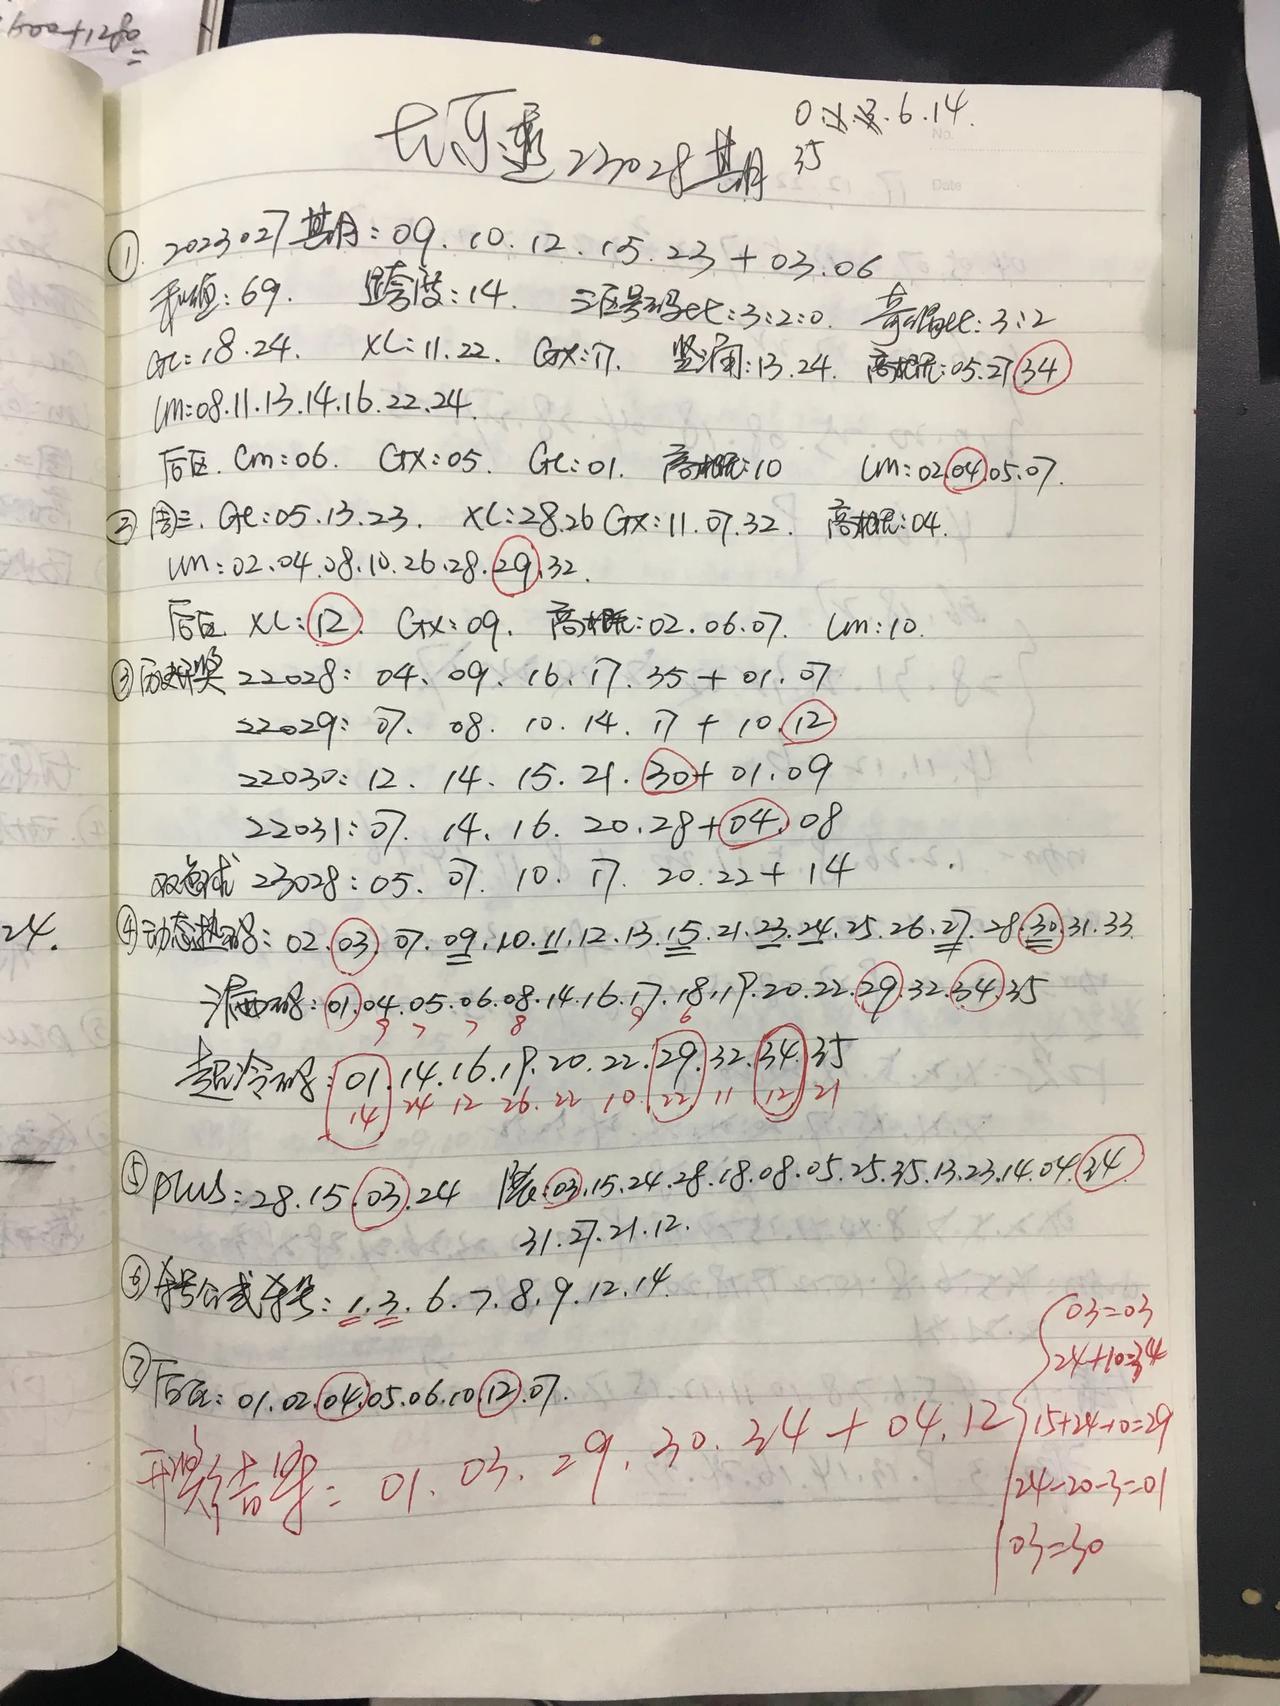 600+1280=
大乐透23028期
0.x.x.6.14.
35
No.
Date
①. 2023027期:09.10.12.15.23+03.06
和值:69. 跨度:14. 三区号码比:3:2:0. 奇偶比:3:2
GL:18.24. XL:11.22. GX:17. 竖漏:13.24. 高概率:05.27.34
LM:08.11.13.14.16.22.24.
后区. CM:06. GX:05. GL:01. 高概率:10 LM:02.04.05.07.
② 周三. GL:05.13.23. XL:28.26 GX:11.07.32. 高概率:04.
LM:02.04.08.10.26.28.29.32.
后区 XL:12. GX:09. 高概率:02.06.07. LM:10.
③历史开奖 22028:04.09.16.17.35+01.07
22029:07.08.10.14.17+10.12
22030:12.14.15.21.30+01.09
22031:07.14.16.20.28+04.08
双色球 23028:05.07.10.17.20.22+14
24.
④动态热码:02.03.07.09.10.11.12.13.15.21.23.24.25.26.27.28.30.31.33
01.04.05.06.08.14.16.17.18.19.20.22.29.32.34.35
9 7 7 8 9 6
超冷码:01.14.16.19.20.22.29.32.34.35
14 24 12 26.22 10 22 11 12 21
⑤plus:28.15.03.24 03.15.24.28.18.08.05.25.35.13.23.14.04.34
31.27.21.12.
⑥杀号公式杀号:1.3.6.7.8.9.12.14.
⑦后区:01.02.04.05.06.10.12.07.
开奖结果:01.03.29.30.34+04.12
03=03
24+10=34
15+24-10=29
24-20-3=01
03=30